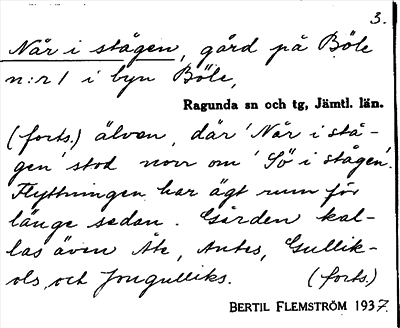 3.
När i stågen, gård på Böle
n:r 1 i byn Böle,
Ragunda sn och tg, Jämtl. län.
(forts.) älven, där 'När i stå-
gen' stod norr om 'Sö i stågen'.
Flyttningen har ägt rum för
länge sedan. Gården kal-
las även Åte, Antes, Gullik-
ols, och Jongulliks. (forts.)
BERTIL FLEMSTRÖM 1937.